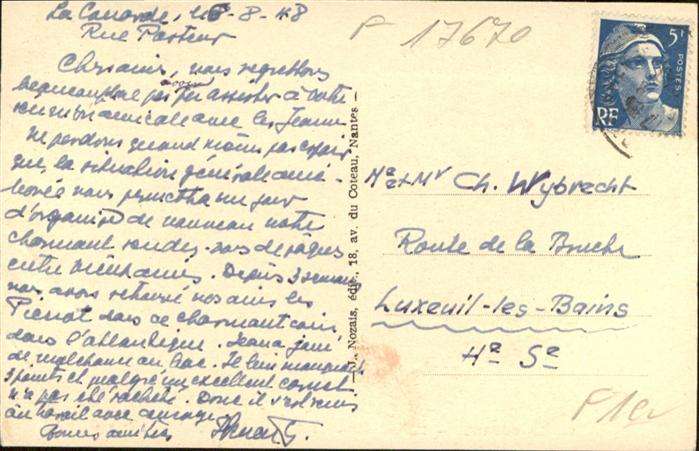 La Cou 26-8-48
Rue Pasteur
Chers amis, nous regrettons
beaucoup de pas avoir pu assister à votre
réunion amicale avec les Jeann
Ne perdons quand même pas espoir
que la situation générale amé-
liorée nous permettra un jour
d'organiser de nouveau notre
charmant rendez-vous de pâques
entre vieux amis. Depuis 3 semaines
nous avons retrouvé nos amis les
Pierrot dans ce charmant coin
dans l'atlantique. Jean a joué
de malchance au bac. Il lui manquait
3 points et malgré un excellent carnet
n'a pas été racheté. Donc il s'est remis
au travail avec courage
Bonnes amitiés
P 17670
5F
POSTES
RF
J. Nozais, édit., 18, av. du Coteau, Nantes
Me et Mr Ch. Wybrecht
Route de la
Luxeuil-les-Bains
Hte Sne